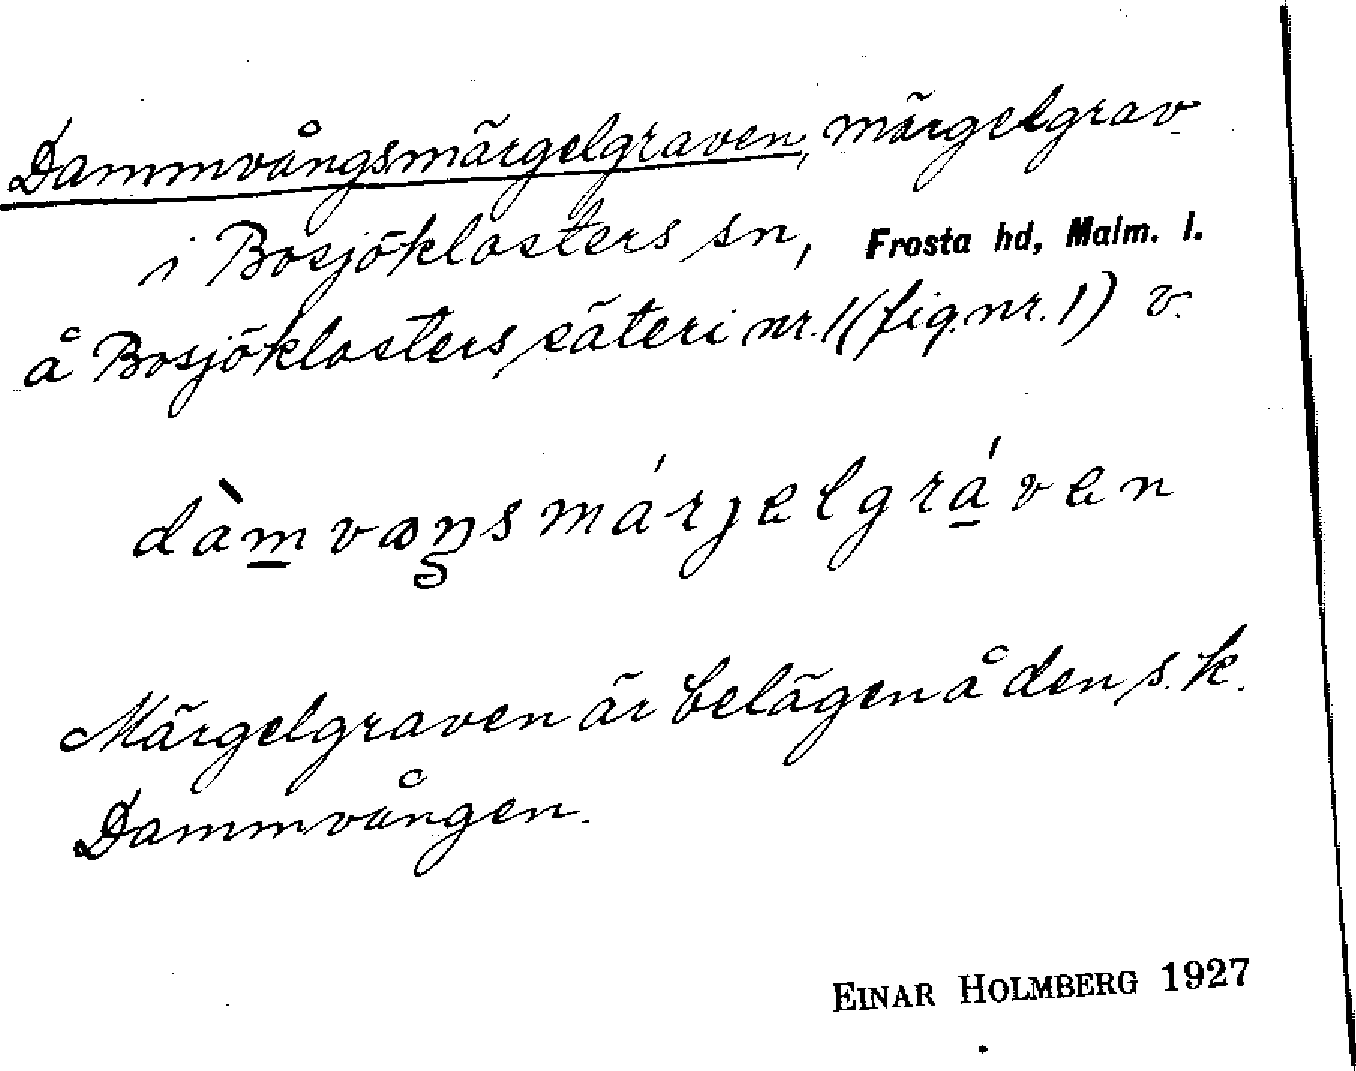 Dammvångsmärgelgraven, märgelgrav
i Bosjöklosters sn, Frosta hd, Malm. l.
å Bosjöklosters säteri nr. 1 (fig. nr. 1) v.
dàm̱vaŋsmárjelgrá̱ven
Märgelgraven är belägen å den s. k.
Dammvången.
EINAR HOLMBERG 1927